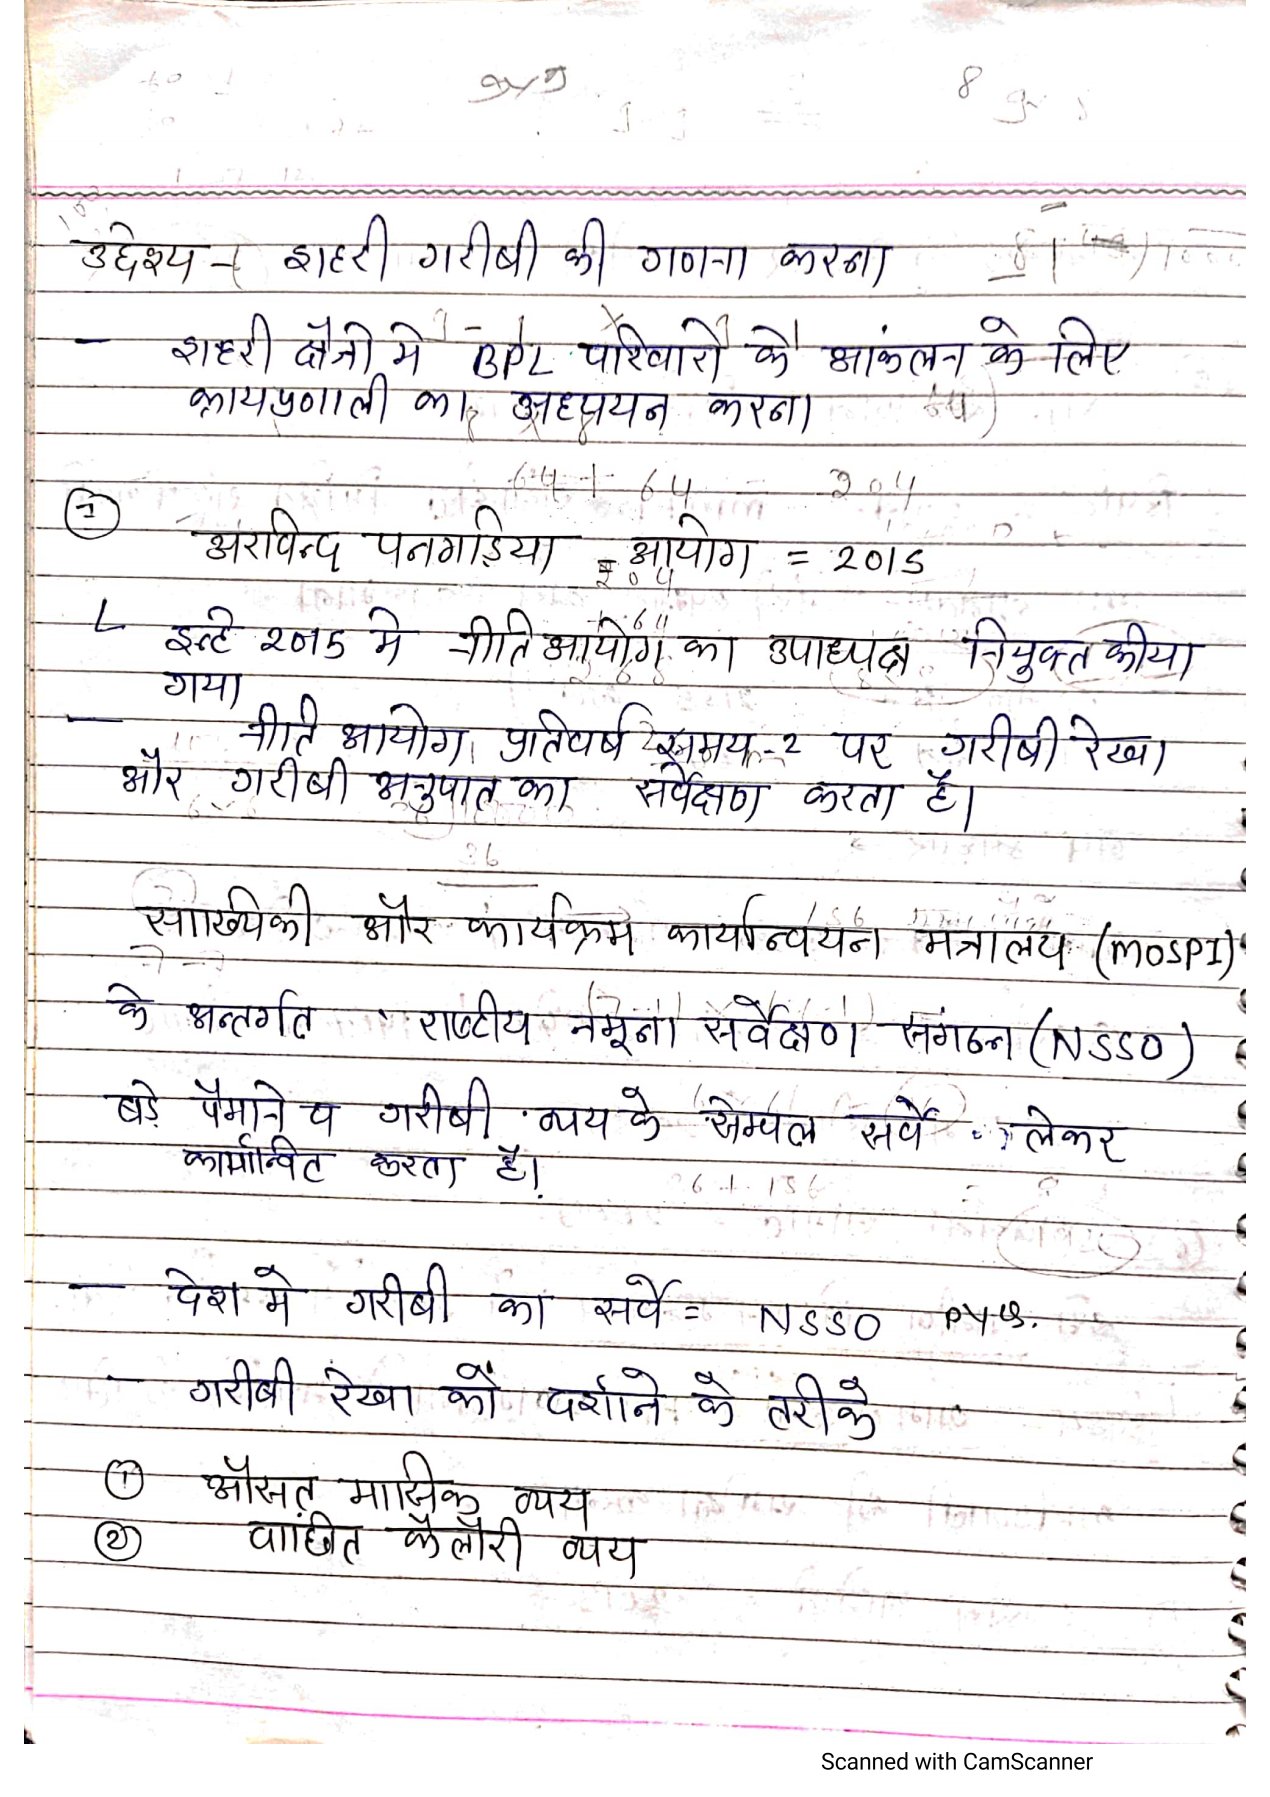 उद्देश्य - शहरी गरीबी की गणना करना
- शहरी क्षैत्रो मे BPL परिवारों के आंकलन के लिए
कायप्रणाली का अध्ययन करना
7
अरविन्द पनगड़िया आयोग = 2015
इन्हे 2015 मे नीति आयोग का उपाध्यक्ष नियुक्त कीया
गया
- नीति आयोग प्रतिवर्ष समय-2 पर गरीबी रेखा
और गरीबी अनुपात का सर्वेक्षण करता है।
साख्यिकी और कार्यक्रम कार्यान्वयन मत्रालय (MOSPI)
के अन्तर्गत राष्टीय नमूना सर्वेक्षण संगठन (NSSO)
बडे पैमाने व गरीबी व्यय के सेम्पल सर्वे लेकर
कार्यान्वित करता है।
- देश मे गरीबी का सर्वे = NSSO PYQ.
- गरीबी रेखा को दर्शाने के तरीके
1 औसत मासिक व्यय
2 वाछित कैलोरी व्यय
Scanned with CamScanner